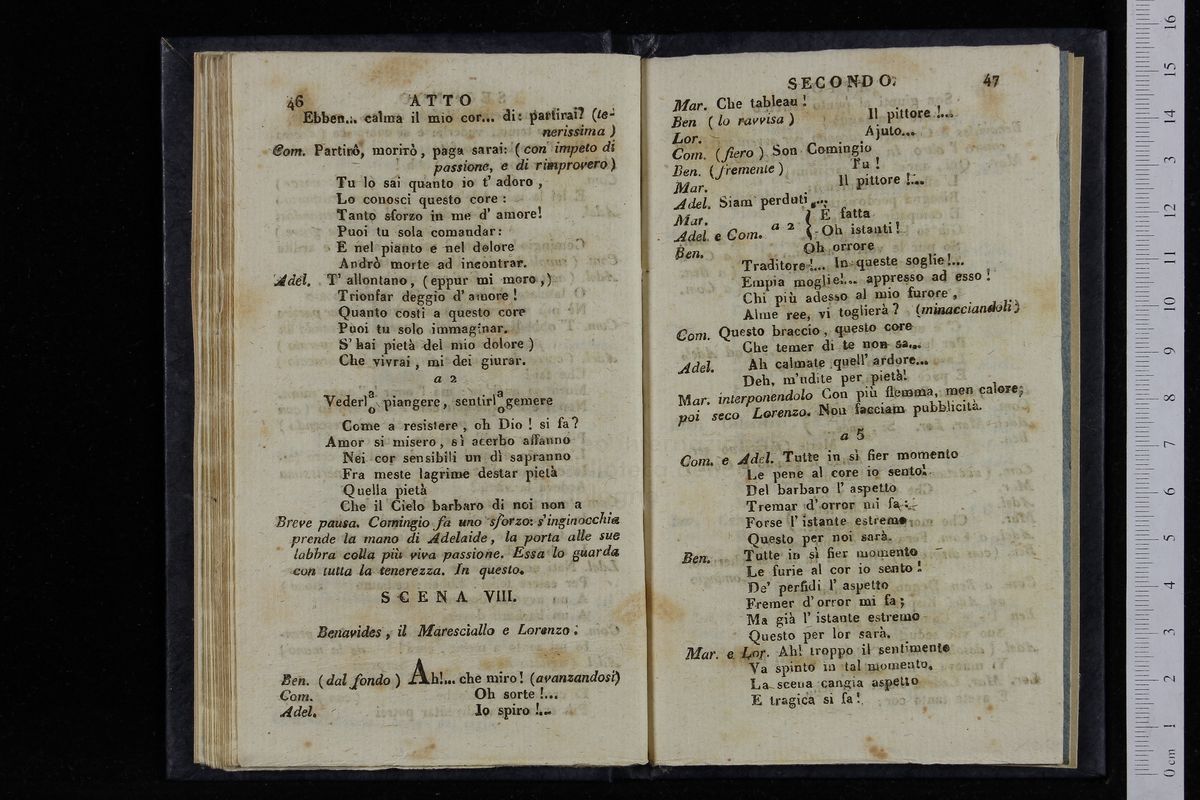 46 ATTO
Ebben... calma il mio cor... di: partirai? (te-
nerissima )
Com. Partirò, morirò, paga sarai: ( con impeto di
passione, e di rimprovero )
Tu lo sai quanto io t' adoro ,
Lo conosci questo core :
Tanto sforzo in me d' amore!
Puoi tu sola comandar:
E nel pianto e nel dolore
Andrò morte ad incontrar.
Adel. T' allontano, ( eppur mi moro , )
Trionfar deggio d' amore !
Quanto costi a questo core
Puoi tu solo immaginar.
S' hai pietà del mio dolore )
Che vivrai , mi dei giurar.
a 2
Vederl a/o piangere, sentirl a/o gemere
Come a resistere , oh Dio ! si fa?
Amor si misero, sì acerbo affanno
Nei cor sensibili un dì sapranno
Fra meste lagrime destar pietà
Quella pietà
Che il Cielo barbaro di noi non a
Breve pausa. Comingio fa uno sforzo: s'inginocchia
prende la mano di Adelaide, la porta alle sue
labbra colla più viva passione. Essa lo guarda
con tutta la tenerezza. In questo.
SCENA VIII.
Benavides , il Maresciallo e Lorenzo .
Ben. ( dal fondo ) Ah!... che miro! (avanzandosi)
Com. Oh sorte !...
Adel. Io spiro !...
SECONDO. 47
Mar. Che tableau !
Ben ( lo ravvisa ) Il pittore !...
Lor. Ajuto...
Com. (fiero ) Son Comingio
Ben. (fremente ) Tu !
Mar. Il pittore !...
Adel. Siam perduti ...
Mar. E fatta
Adel. e Com. a 2 { Oh istanti!
Ben. Oh orrore
Traditore!... In queste soglie!...
Empia moglie!... appresso ad esso !
Chi più adesso al mio furore ,
Alme ree, vi toglierà ? (minacciandoli)
Com. Questo braccio , questo core
Che temer di te non sa...
Adel. Ah calmate quell' ardore...
Deh, m'udite per pietà!
Mar. interponendolo Con più flemma, men calore;
poi seco Lorenzo. Non facciam pubblicità.
a 5
Com. e Adel. Tutte in sì fier momento
Le pene al core io sento!
Del barbaro l' aspetto
Tremar d' orror mi fa;
Forse l' istante estremo
Questo per noi sarà.
Ben. Tutte in sì fier momento
Le furie al cor io sento !
De' perfidi l' aspetto
Fremer d' orror mi fa;
Ma già l' istante estremo
Questo per lor sarà.
Mar. e Lor. Ah! troppo il sentimento
Va spinto in tal momento.
La scena cangia aspetto
E tragica si fa!
0 cm 1 2 3 4 5 6 7 8 9 10 11 12 13 14 15 16